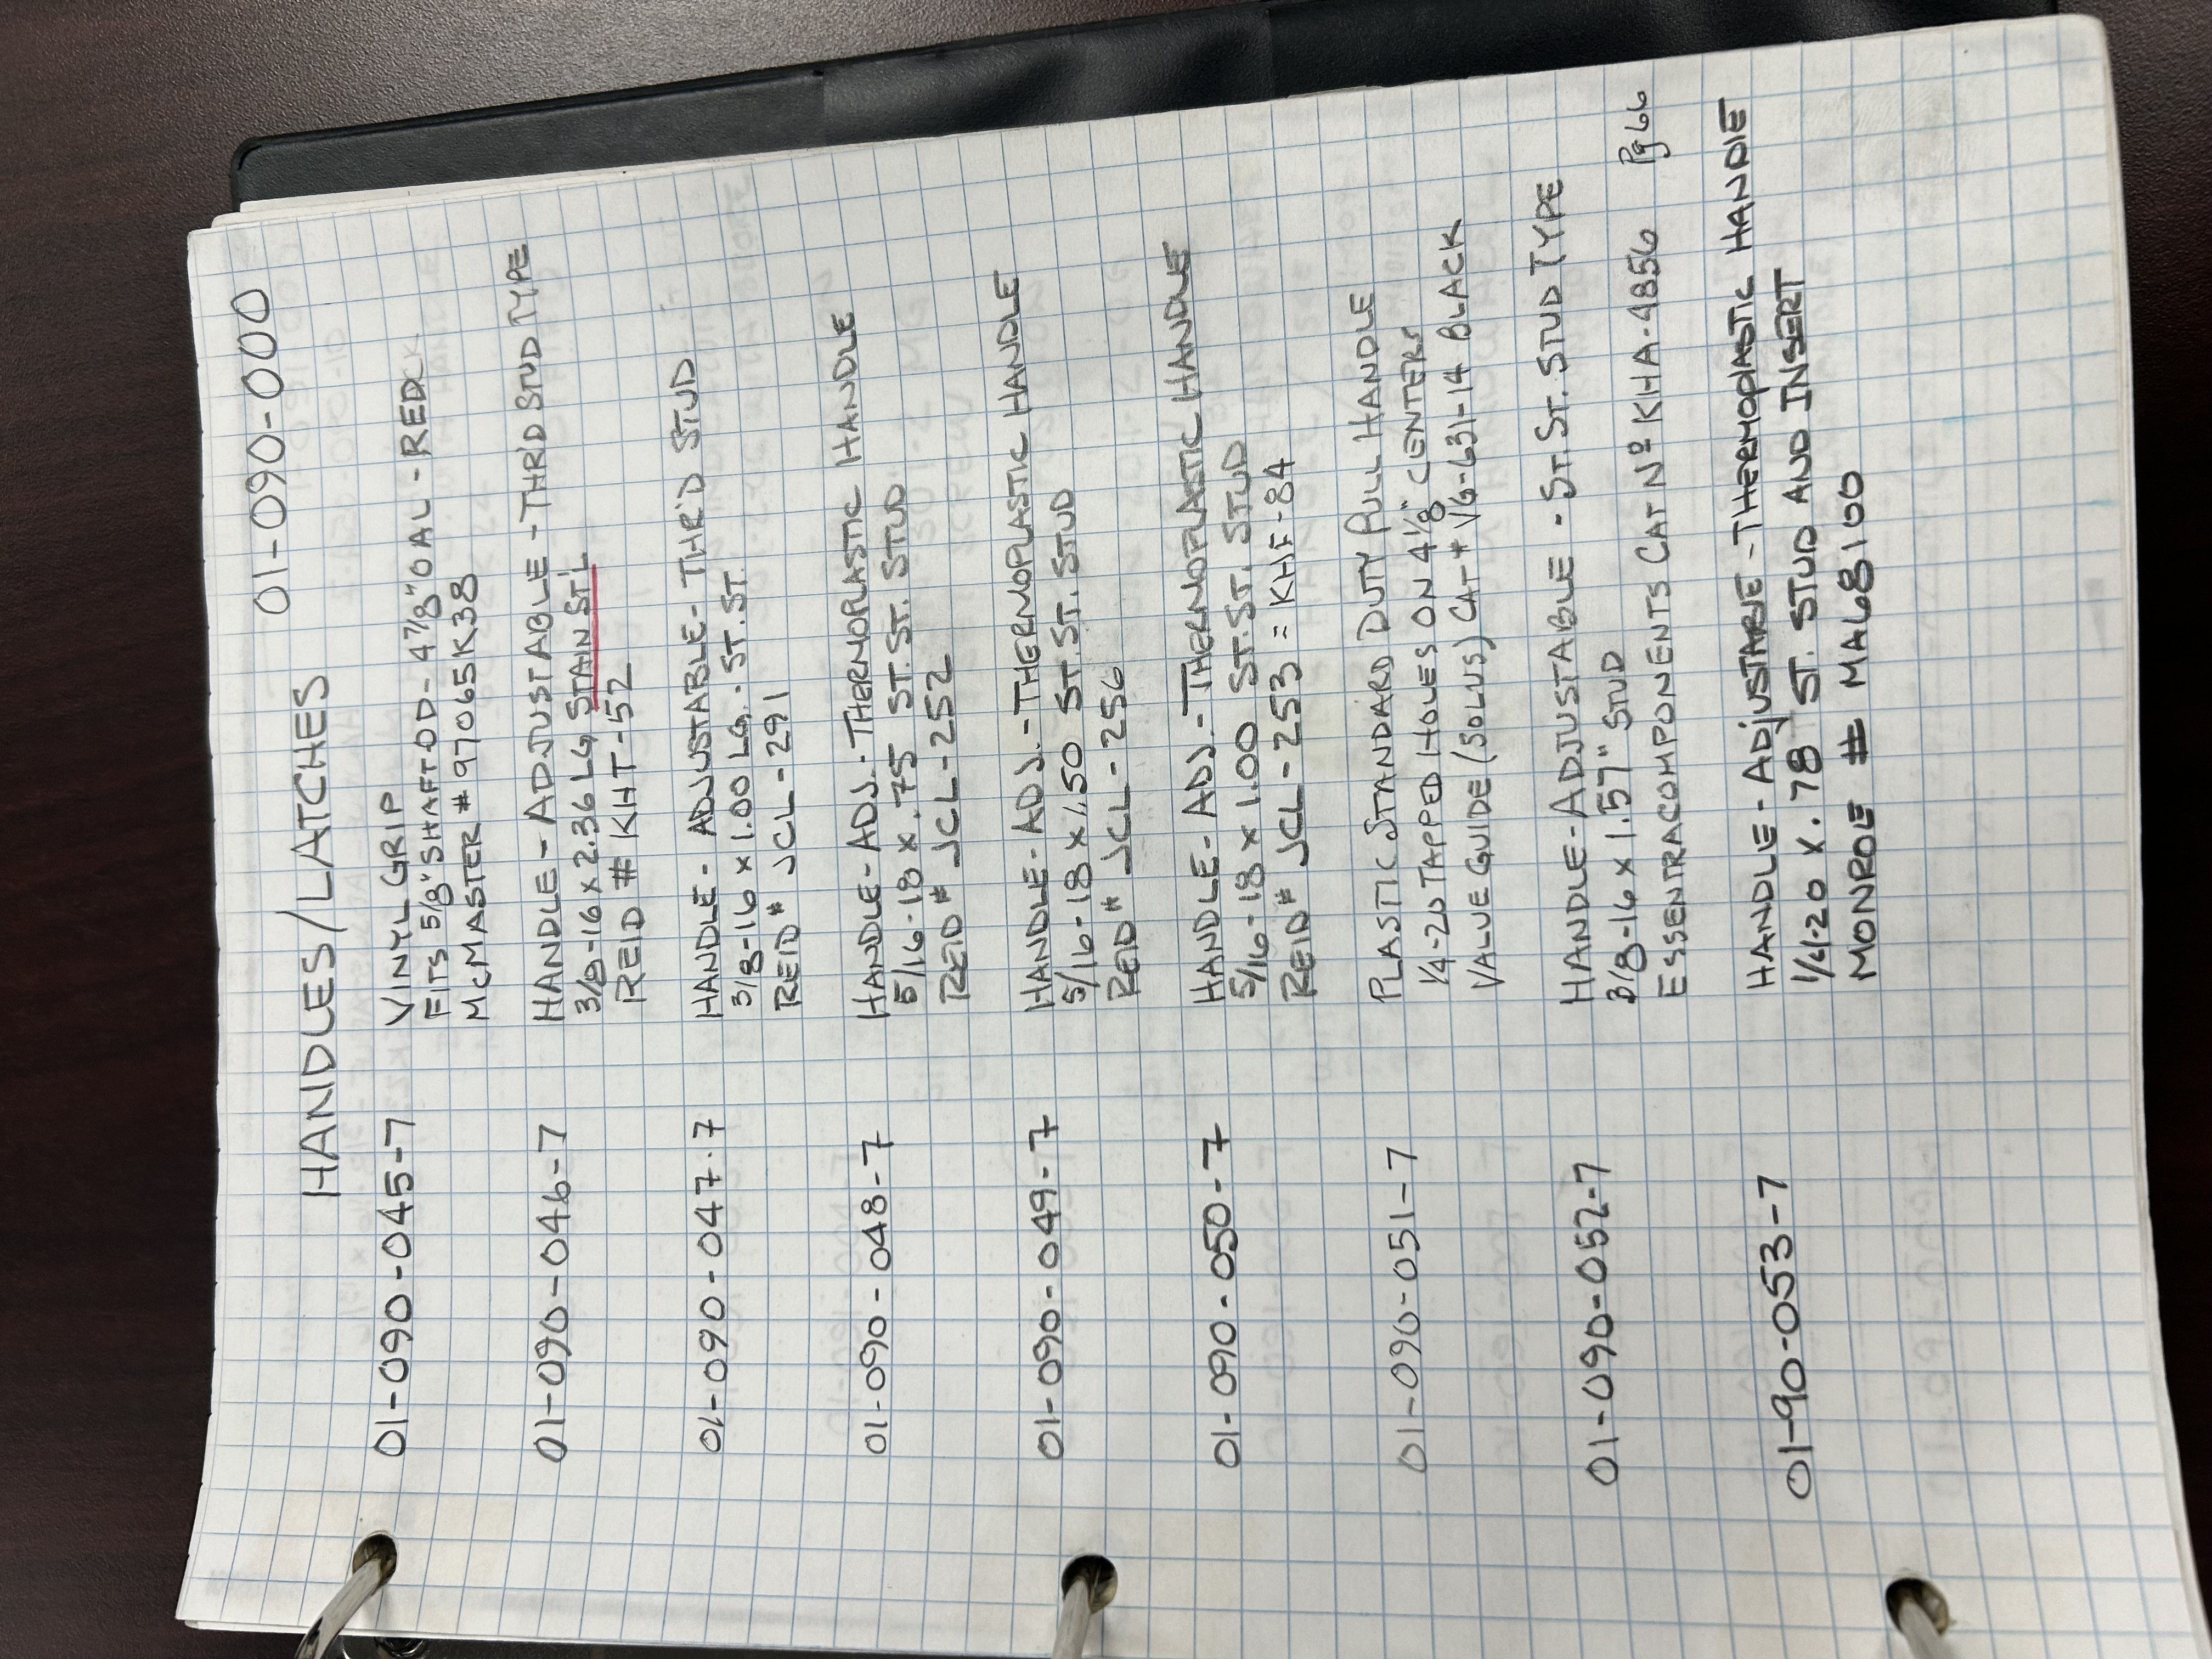 01-090-000
HANDLES/LATCHES
01-090-045-7 VINYL GRIP
FITS 5/8" SHAFT OD- 4 7/8" OAL - RED
McMASTER # 97065K38
01-090-046-7 HANDLE - ADJUSTABLE - THR'D STUD TYPE
3/8-16 x 2.36 LG STAIN ST'L
REID # KHT-52
01-090-047-7 HANDLE - ADJUSTABLE - THR'D STUD
3/8-16 x 1.00 LG. - ST. ST.
REID # JCL-291
01-090-048-7 HANDLE-ADJ. - THERMOPLASTIC HANDLE
5/16-18 x .75 ST. ST. STUD
REID # JCL-252
01-090-049-7 HANDLE-ADJ. - THERMOPLASTIC HANDLE
5/16-18 x 1.50 ST. ST. STUD
REID # JCL-256
01-090-050-7 HANDLE-ADJ. - THERMOPLASTIC HANDLE
5/16-18 x 1.00 ST. ST. STUD
REID # JCL-253 = KHF-84
01-090-051-7 PLASTIC STANDARD DUTY PULL HANDLE
1/4-20 TAPPED HOLES ON 4 1/8" CENTERS
VALUE GUIDE (SOLUS) CAT # VG-631-14 BLACK
01-090-052-7 HANDLE-ADJUSTABLE - ST. ST. STUD TYPE
3/8-16 x 1.57" STUD
ESSENTRACOMPONENTS CAT Nº KHA-4856 Pg 66
01-90-053-7 HANDLE - ADjUSTABlE - THERMOplASTIC HANDlE
1/4-20 X .78 ST. STUD AND INSERT
MONROE # MA68100